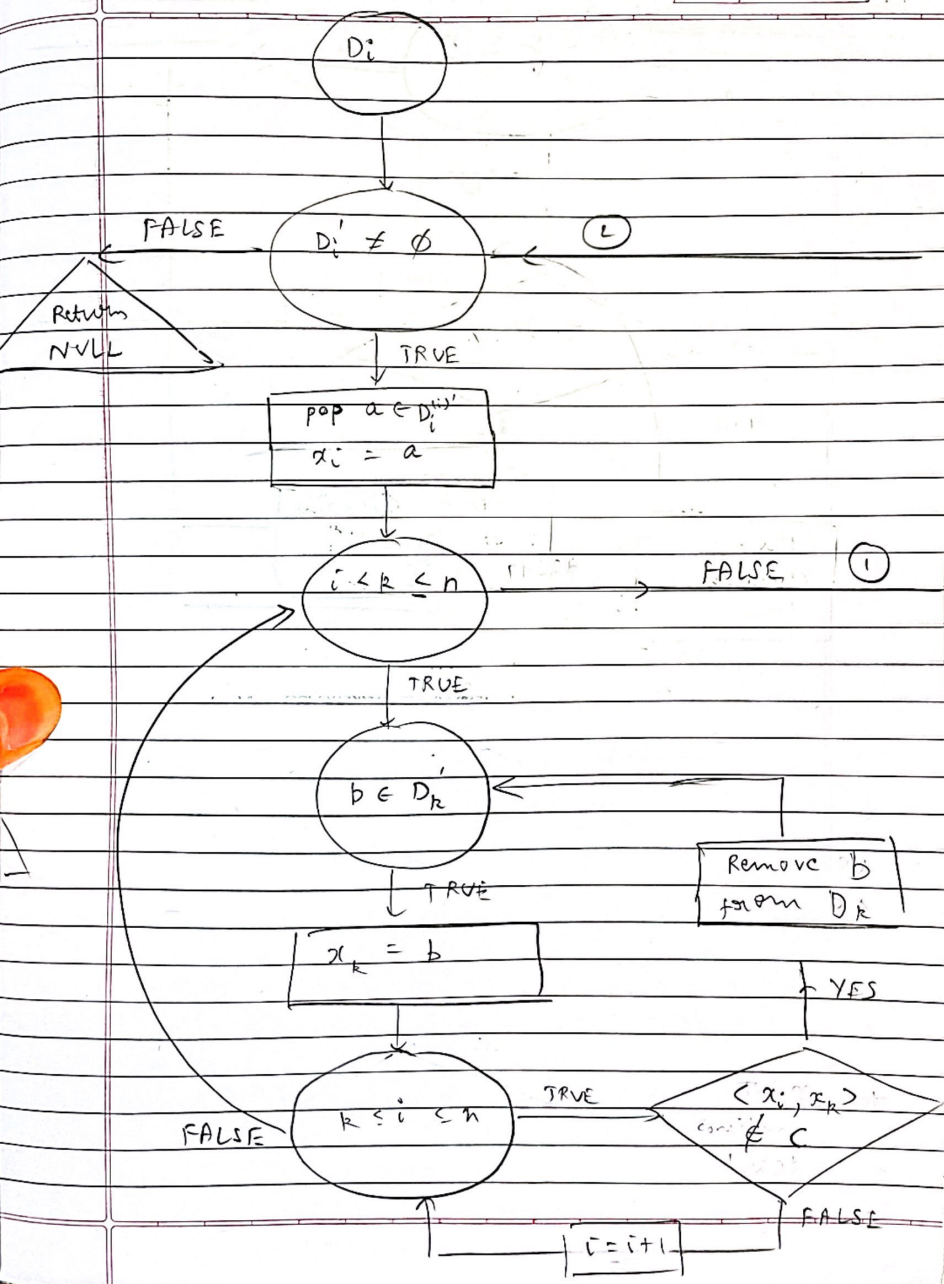 Di
FALSE
Di' ≠ ∅
2
Return
NULL
TRUE
pop a ∈ Di(i)'
xi = a
i < k ≤ n
FALSE
1
TRUE
b ∈ Dk'
Remove b
from Dk
TRUE
xk = b
YES
k ≤ i ≤ n
TRUE
< xi, xk >
∉ C
FALSE
FALSE
i = i+1